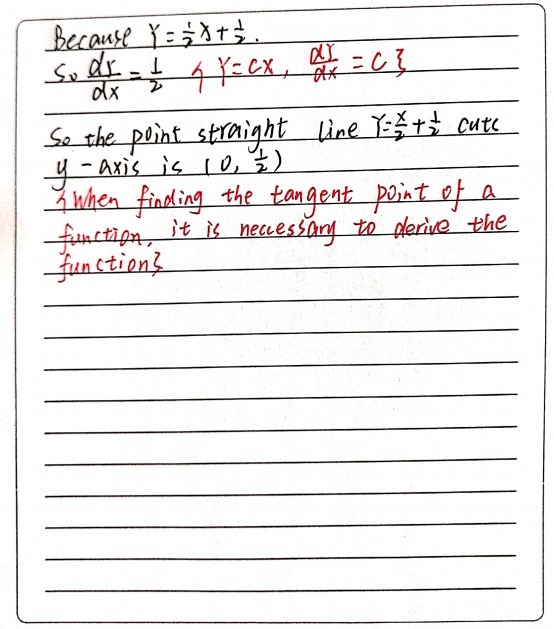 Because Y = 1/2 x + 1/2.
So dY/dx = 1/2 { Y = cx, dY/dx = c }
So the point straight line Y = x/2 + 1/2 cuts
y-axis is (0, 1/2)
{When finding the tangent point of a
function, it is neccessary to derive the
function}